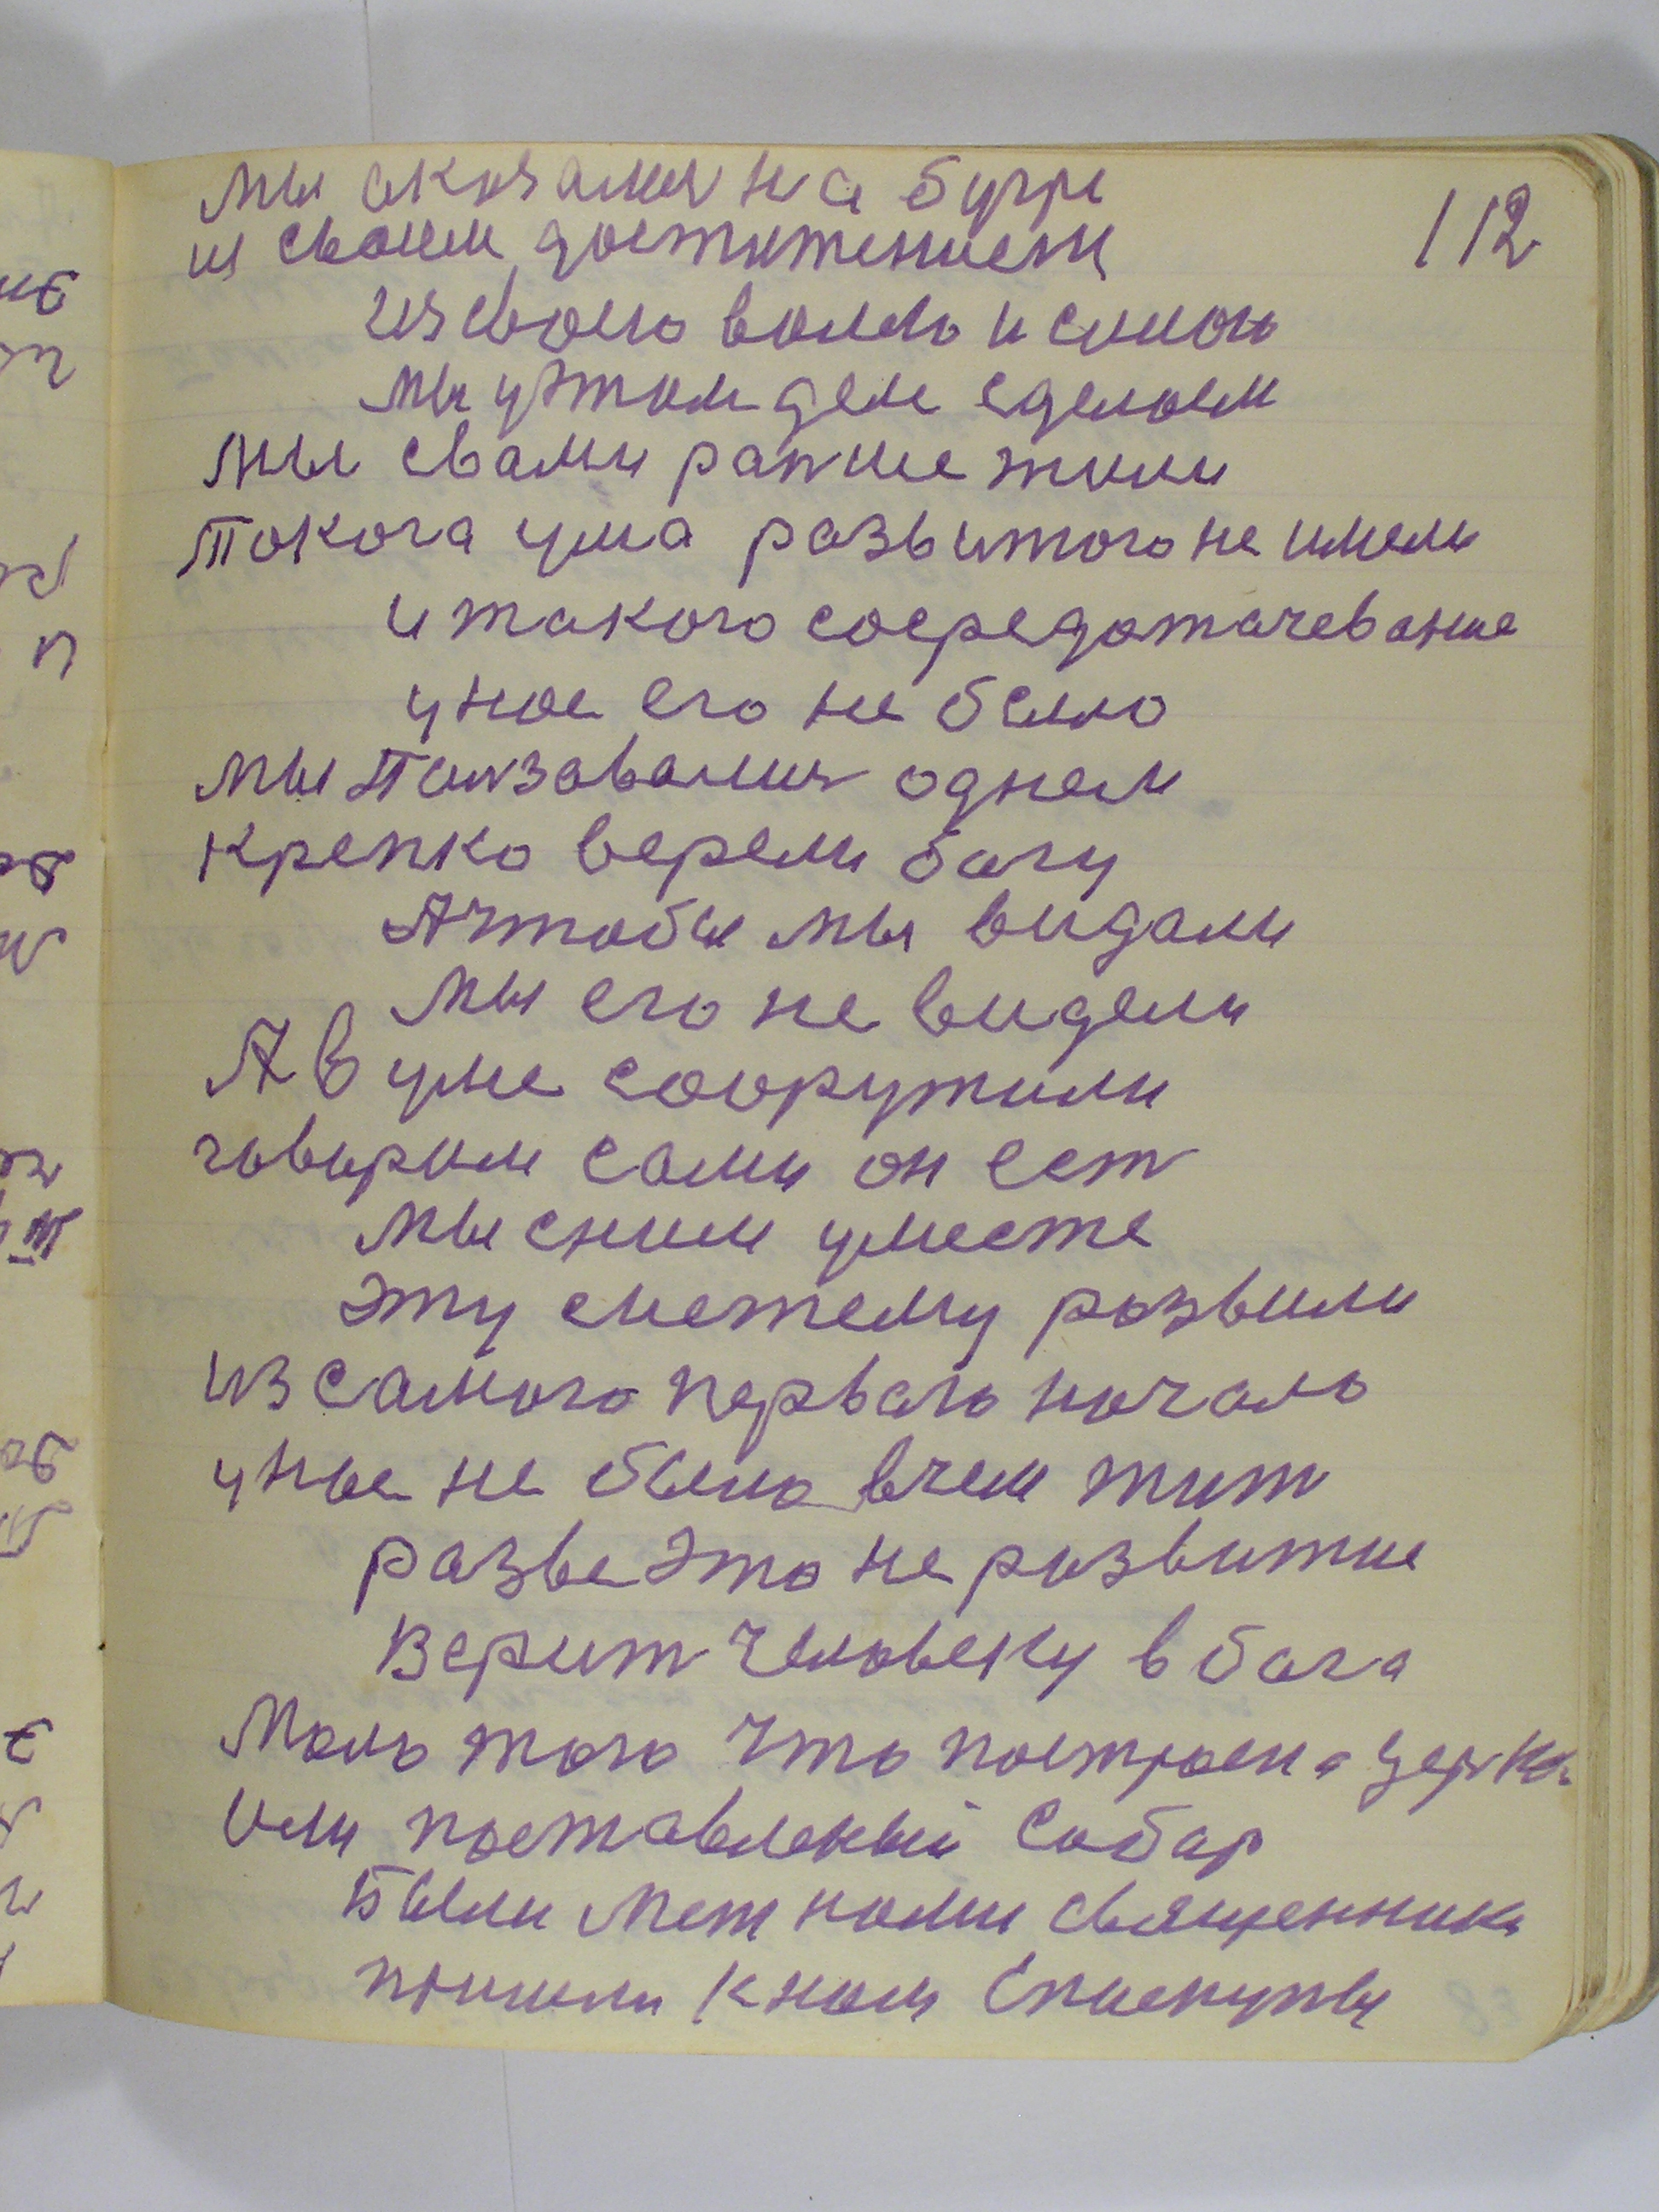 112
мы оказалися на бугре
из своим достижением
из своею волею и силою
мы у этом деле сделаем
мы с вами раньше жили
Такога ума развитого не имели
и такого сосредотачевание
у нас его не было
мы Ползавались однем
крепко верели богу
А чтобы мы видали
мы его не видели
А в уме сооружили
говорим сами он ест
мы с ним уместе
эту систему развили
из самого первого начало
у нас не было в чем жит
разве это не развитие
Верит человеку в бога
Мало того что построена церква
Или поставленый Собор
Были Меж нами священники
пришли к нам Епископы